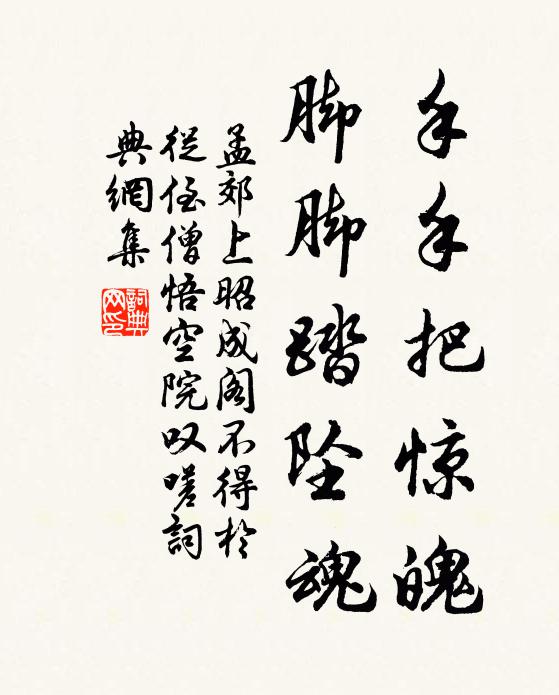 手手把惊魄
脚脚踏坠魂
孟郊上昭成阁不得於
從侄僧悟空院叹嗟詞
典網集
詞典
网印